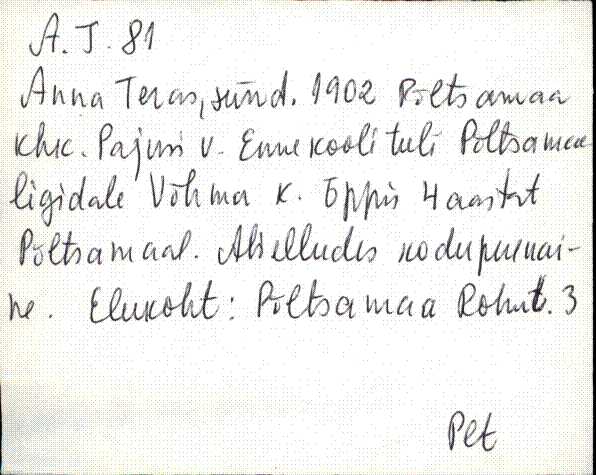 A.T. 81
Anna Teras, sünd. 1902 Põltsamaa
khk. Pajusi v. Enne kooli tuli Põltsamaa
ligidale Võhma k. Õppis 4 aastat
Põltsamaal. Abielludes koduperenai-
ne. Elukoht: Põltsamaa Rohu t. 3
Plt